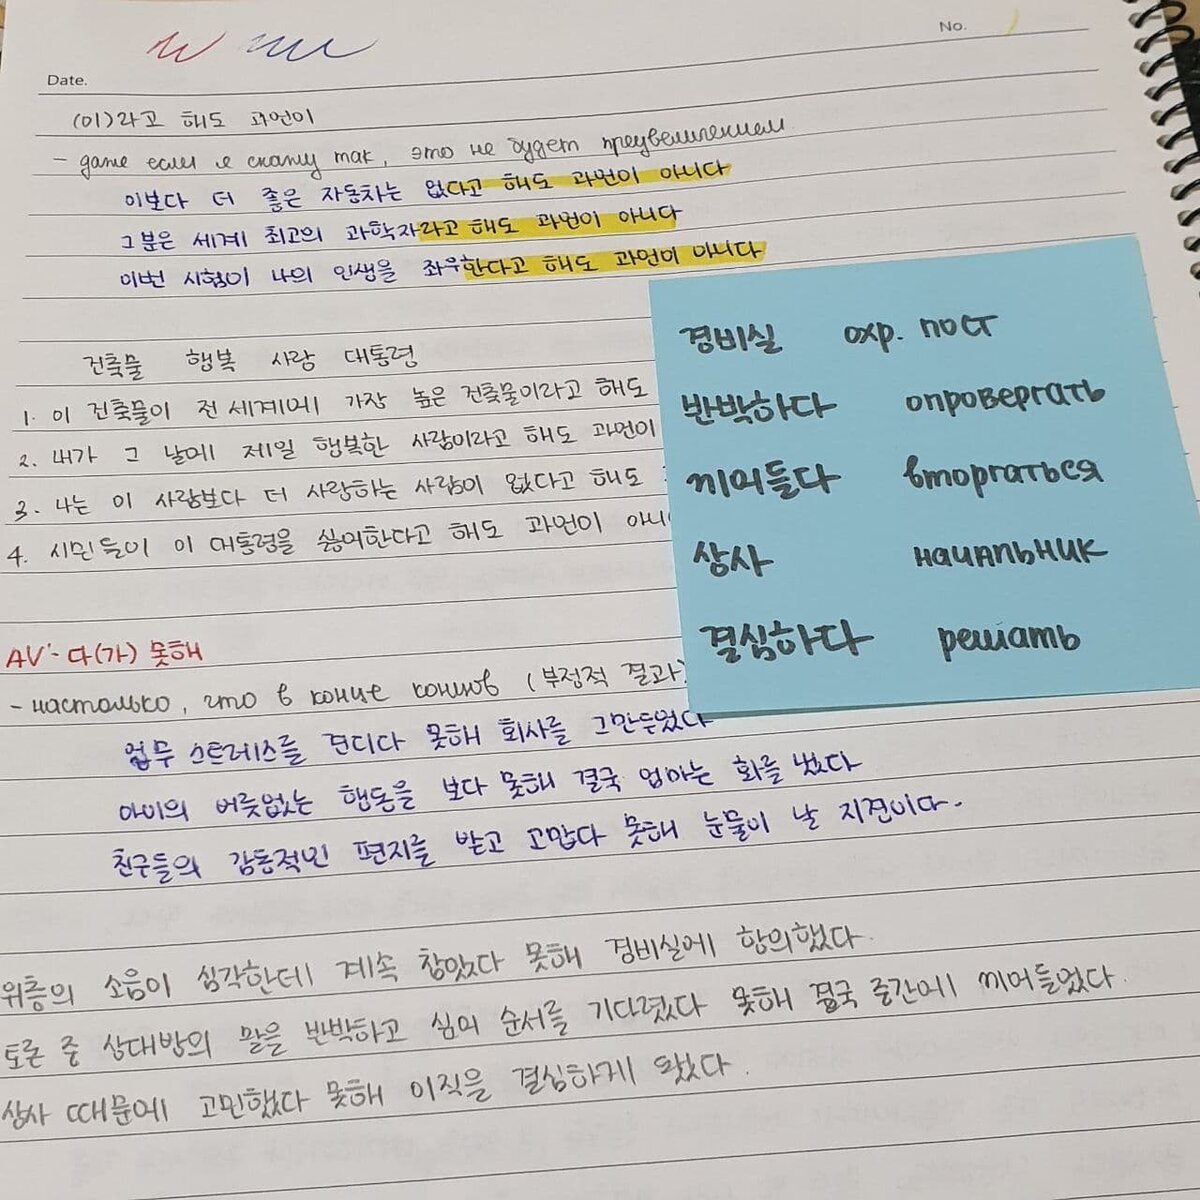 No.
Date.
(이)라고 해도 과언이
- даже если я скажу так, это не будет преувеличением
이보다 더 좋은 자동차는 없다고 해도 과언이 아니다
그분은 세계 최고의 과학자라고 해도 과언이 아니다
이번 시험이 나의 인생을 좌우한다고 해도 과언이 아니다
건축물 행복 사랑 대통령
1. 이 건축물이 전 세계에 가장 높은 건축물이라고 해도
2. 내가 그 날에 제일 행복한 사람이라고 해도 과언이
3. 나는 이 사람보다 더 사랑하는 사람이 없다고 해도
4. 시민들이 이 대통령을 싫어한다고 해도 과언이 아니
경비실 охр. пост
반박하다 опровергать
끼어들다 вторгаться
상사 начальник
결심하다 решать
AV-다(가) 못해
- настолько, что в конце концов (부정적 결과)
업무 스트레스를 견디다 못해 회사를 그만두었다
아이의 버릇없는 행동을 보다 못해 결국 엄마는 화를 냈다
친구들의 감동적인 편지를 받고 고맙다 못해 눈물이 날 지견이다.
위층의 소음이 심각한데 계속 참았다 못해 경비실에 항의했다.
토론 중 상대방의 말을 반박하고 심어 순서를 기다렸다 못해 결국 중간에 끼어들었다.
상사 때문에 고민했다 못해 이직을 결심하게 됐다.